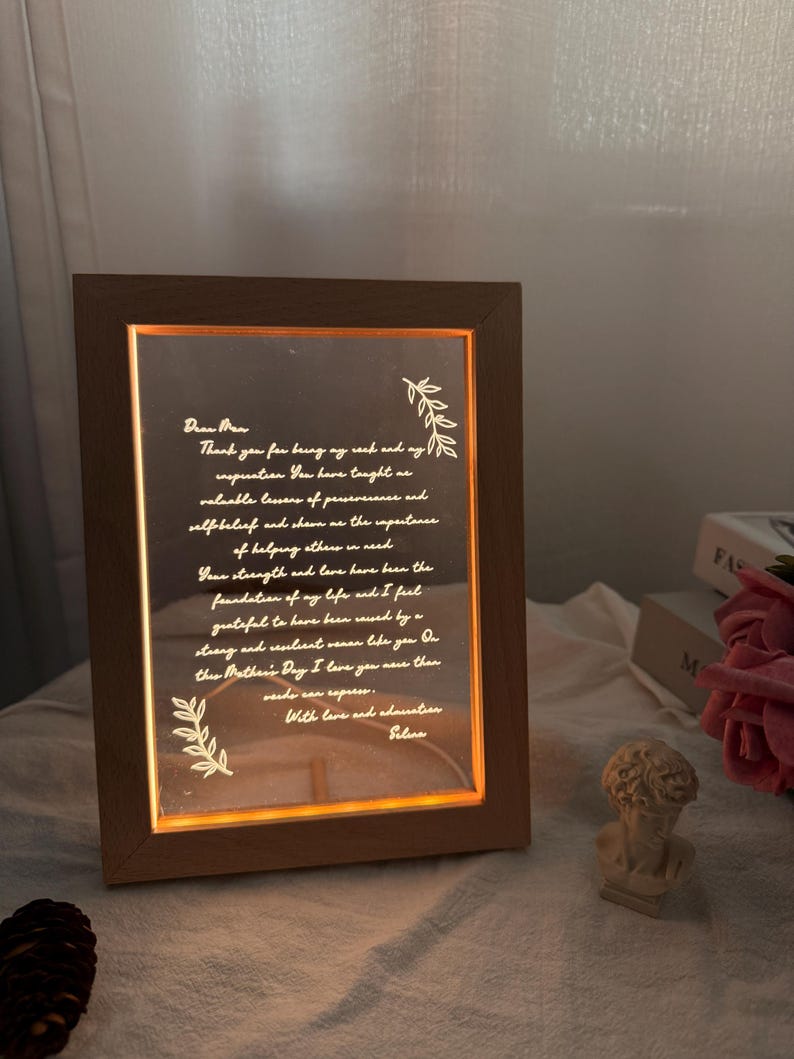 Dear Mom
Thank you for being my rock and my
inspiration You have taught me
valuable lessons of perseverance and
self-belief and shown me the importance
of helping others in need
Your strength and love have been the
foundation of my life and I feel
grateful to have been raised by a
strong and resilient woman like you On
this Mother's Day I love you more than
words can express.
With love and admiration
Selena
FAS
M